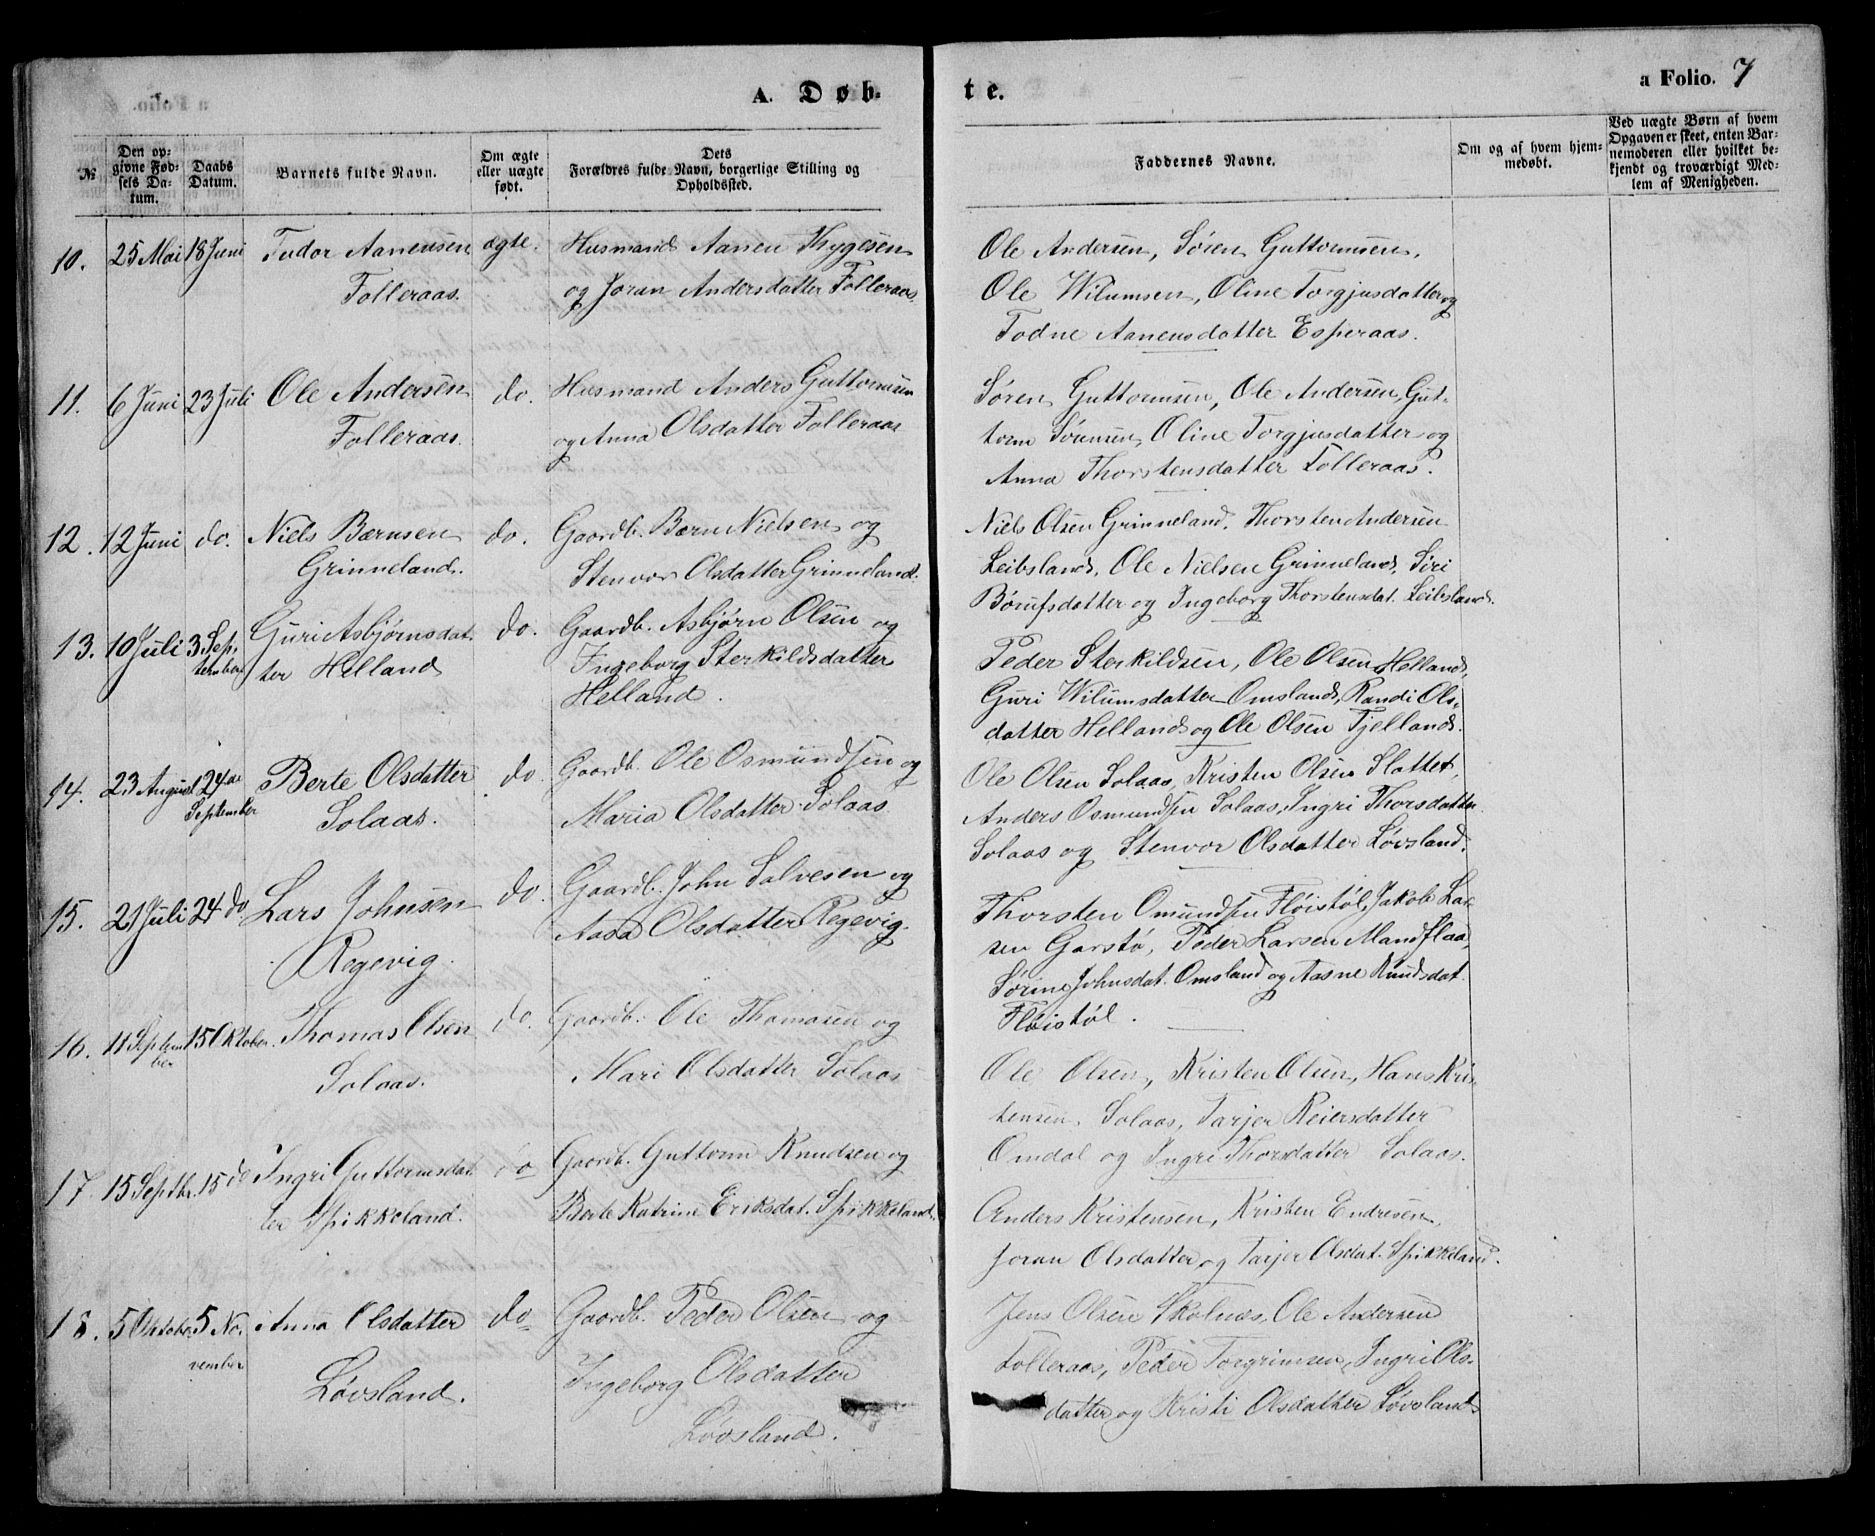 A. Døb-
te.
a Folio. 7
№
Den op-
givne Fød-
sels Da-
tum.
Daabs
Datum.
Barnets fulde Navn.
Om ægte
eller uægte
født.
Dets
Forældres fulde Navn, borgerlige Stilling og
Opholdssted.
Faddernes Navne.
Om og af hvem hjem-
medøbt.
Ved uægte Børn af hvem
Opgaven er skeet, enten Bar-
nemoderen eller hvilket be-
kjendt og troværdigt Med-
lem af Menigheden.
10. 25 Mai 18 Juni Tudor Aanensen ægte. Husmand Aanen Thygesen
Folleraas. og Joran Andersdatter Folleraas.
Ole Andersen, Søren Guttormsen,
Ole Wilumsen, Oline Torgjusdatter og
Todne Aanensdatter Esperaas.
11. 6 Juni 23 Juli Ole Andersen do. Husmand Anders Guttormsen
Folleraas. og Anna Olsdatter Folleraas
Søren Guttormsen, Ole Andersen, Gut-
torm Sørensen, Oline Torgjusdatter og
Anna Thorstensdatter Folleraas.
12. 12 Juni do. Niels Bærnsen do. Gaardb. Bærn Nielsen og
Grinneland. Stenvor Olsdatter Grinneland.
Niels Olsen Grinneland, Thorsten Andersen
Leibsland, Ole Nielsen Grinneland, Siri
Børufsdatter og Ingeborg Thorstensdat. Leibsland.
13. 10 Juli 3 Sep- Guri Asbjørnsdat- do. Gaardb. Asbjørn Olsen og
tember ter Helland Ingeborg Sterkildsdatter
Helland.
Peder Sterkildsen, Ole Olsen Helland,
Guri Wilumsdatter Omsland, Randi Ols-
datter Helland og Ole Olsen Tjelland.
14. 23 August 24de Berte Olsdatter do. Gaardb. Ole Osmundsen og
September Solaas. Maria Olsdatter Solaas.
Ole Olsen Solaas, Kristen Olsen Slottet,
Anders Osmundsen Solaas, Ingri Thorsdatter
Solaas og Stenvor Olsdatter Løvsland.
15. 21 Juli 24 do Lars Johnsen do. Gaardb. John Salvesen og
Regevig. Aasa Olsdatter Regevig.
Thorsten Omundsen Fløistøl, Jakob Lar-
sen Garstø, Peder Larsen Mandflaa,
Sørine Johnsdat. Omsland og Aasne Knudsdat.
Fløistøl.
16. 11 Septem- 15 Oktober. Thomas Olsen do. Gaardb. Ole Thomasen og
ber Solaas. Mari Olsdatter Solaas
Ole Olsen, Kristen Olsen, Hans Kris-
tensen Solaas, Tarjer Reiersdatter
Omdal og Ingri Thorsdatter Solaas.
17. 15 Septbr. 15 do Ingri Guttormsdat- do Gaardb. Guttorm Knudsen og
ter Spikkeland. Berte Katrine Eriksdat. Spikkeland.
Anders Kristensen, Kristen Endresen,
Joran Olsdatter og Tarjer Olsdat. Spikkeland.
18. 5 Oktober 5 No- Anna Olsdatter do Gaardb. Peder Olsen og
vember Løvsland. Ingeborg Olsdatter
Løvsland.
Jens Olsen Skolnæs, Ole Andersen
Folleraas, Peder Torgrimsen, Ingri Ols-
datter og Kristi Olsdatter Løvsland